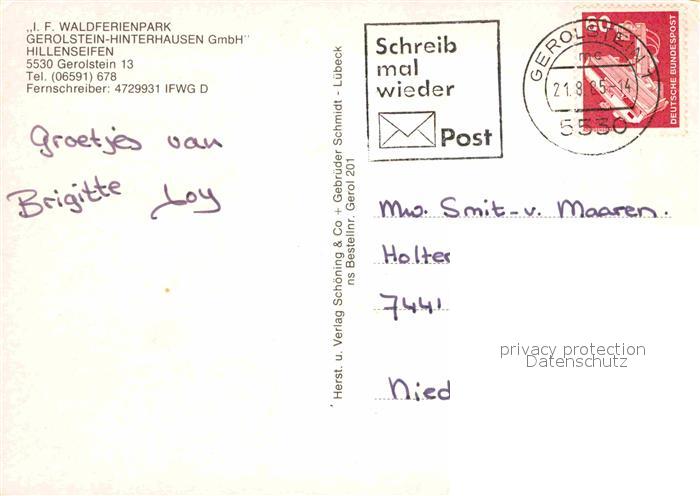 „I. F. WALDFERIENPARK
GEROLSTEIN-HINTERHAUSEN GmbH"
HILLENSEIFEN
5530 Gerolstein 13
Tel. (06591) 678
Fernschreiber: 4729931 IFWG D
Groetjes van
Brigitte Loy
Herst. u. Verlag Schöning & Co + Gebrüder Schmidt - Lübeck
ns Bestellnr. Gerol 201
Schreib
mal
wieder
Post
GEROLSTEIN 1
mc
21.8.85-14
5530
60
DEUTSCHE BUNDESPOST
Mw. Smit-v. Maaren.
Holter
7441
Nied
privacy protection
Datenschutz